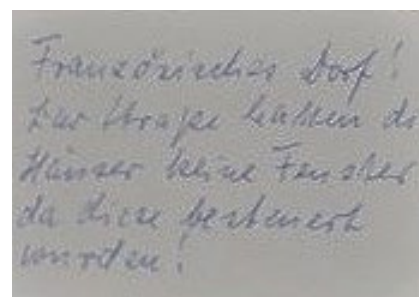 Französisches Dorf!
Zur Straße hatten di
Häuser keine Fenster
da diese besteuert
wurden!